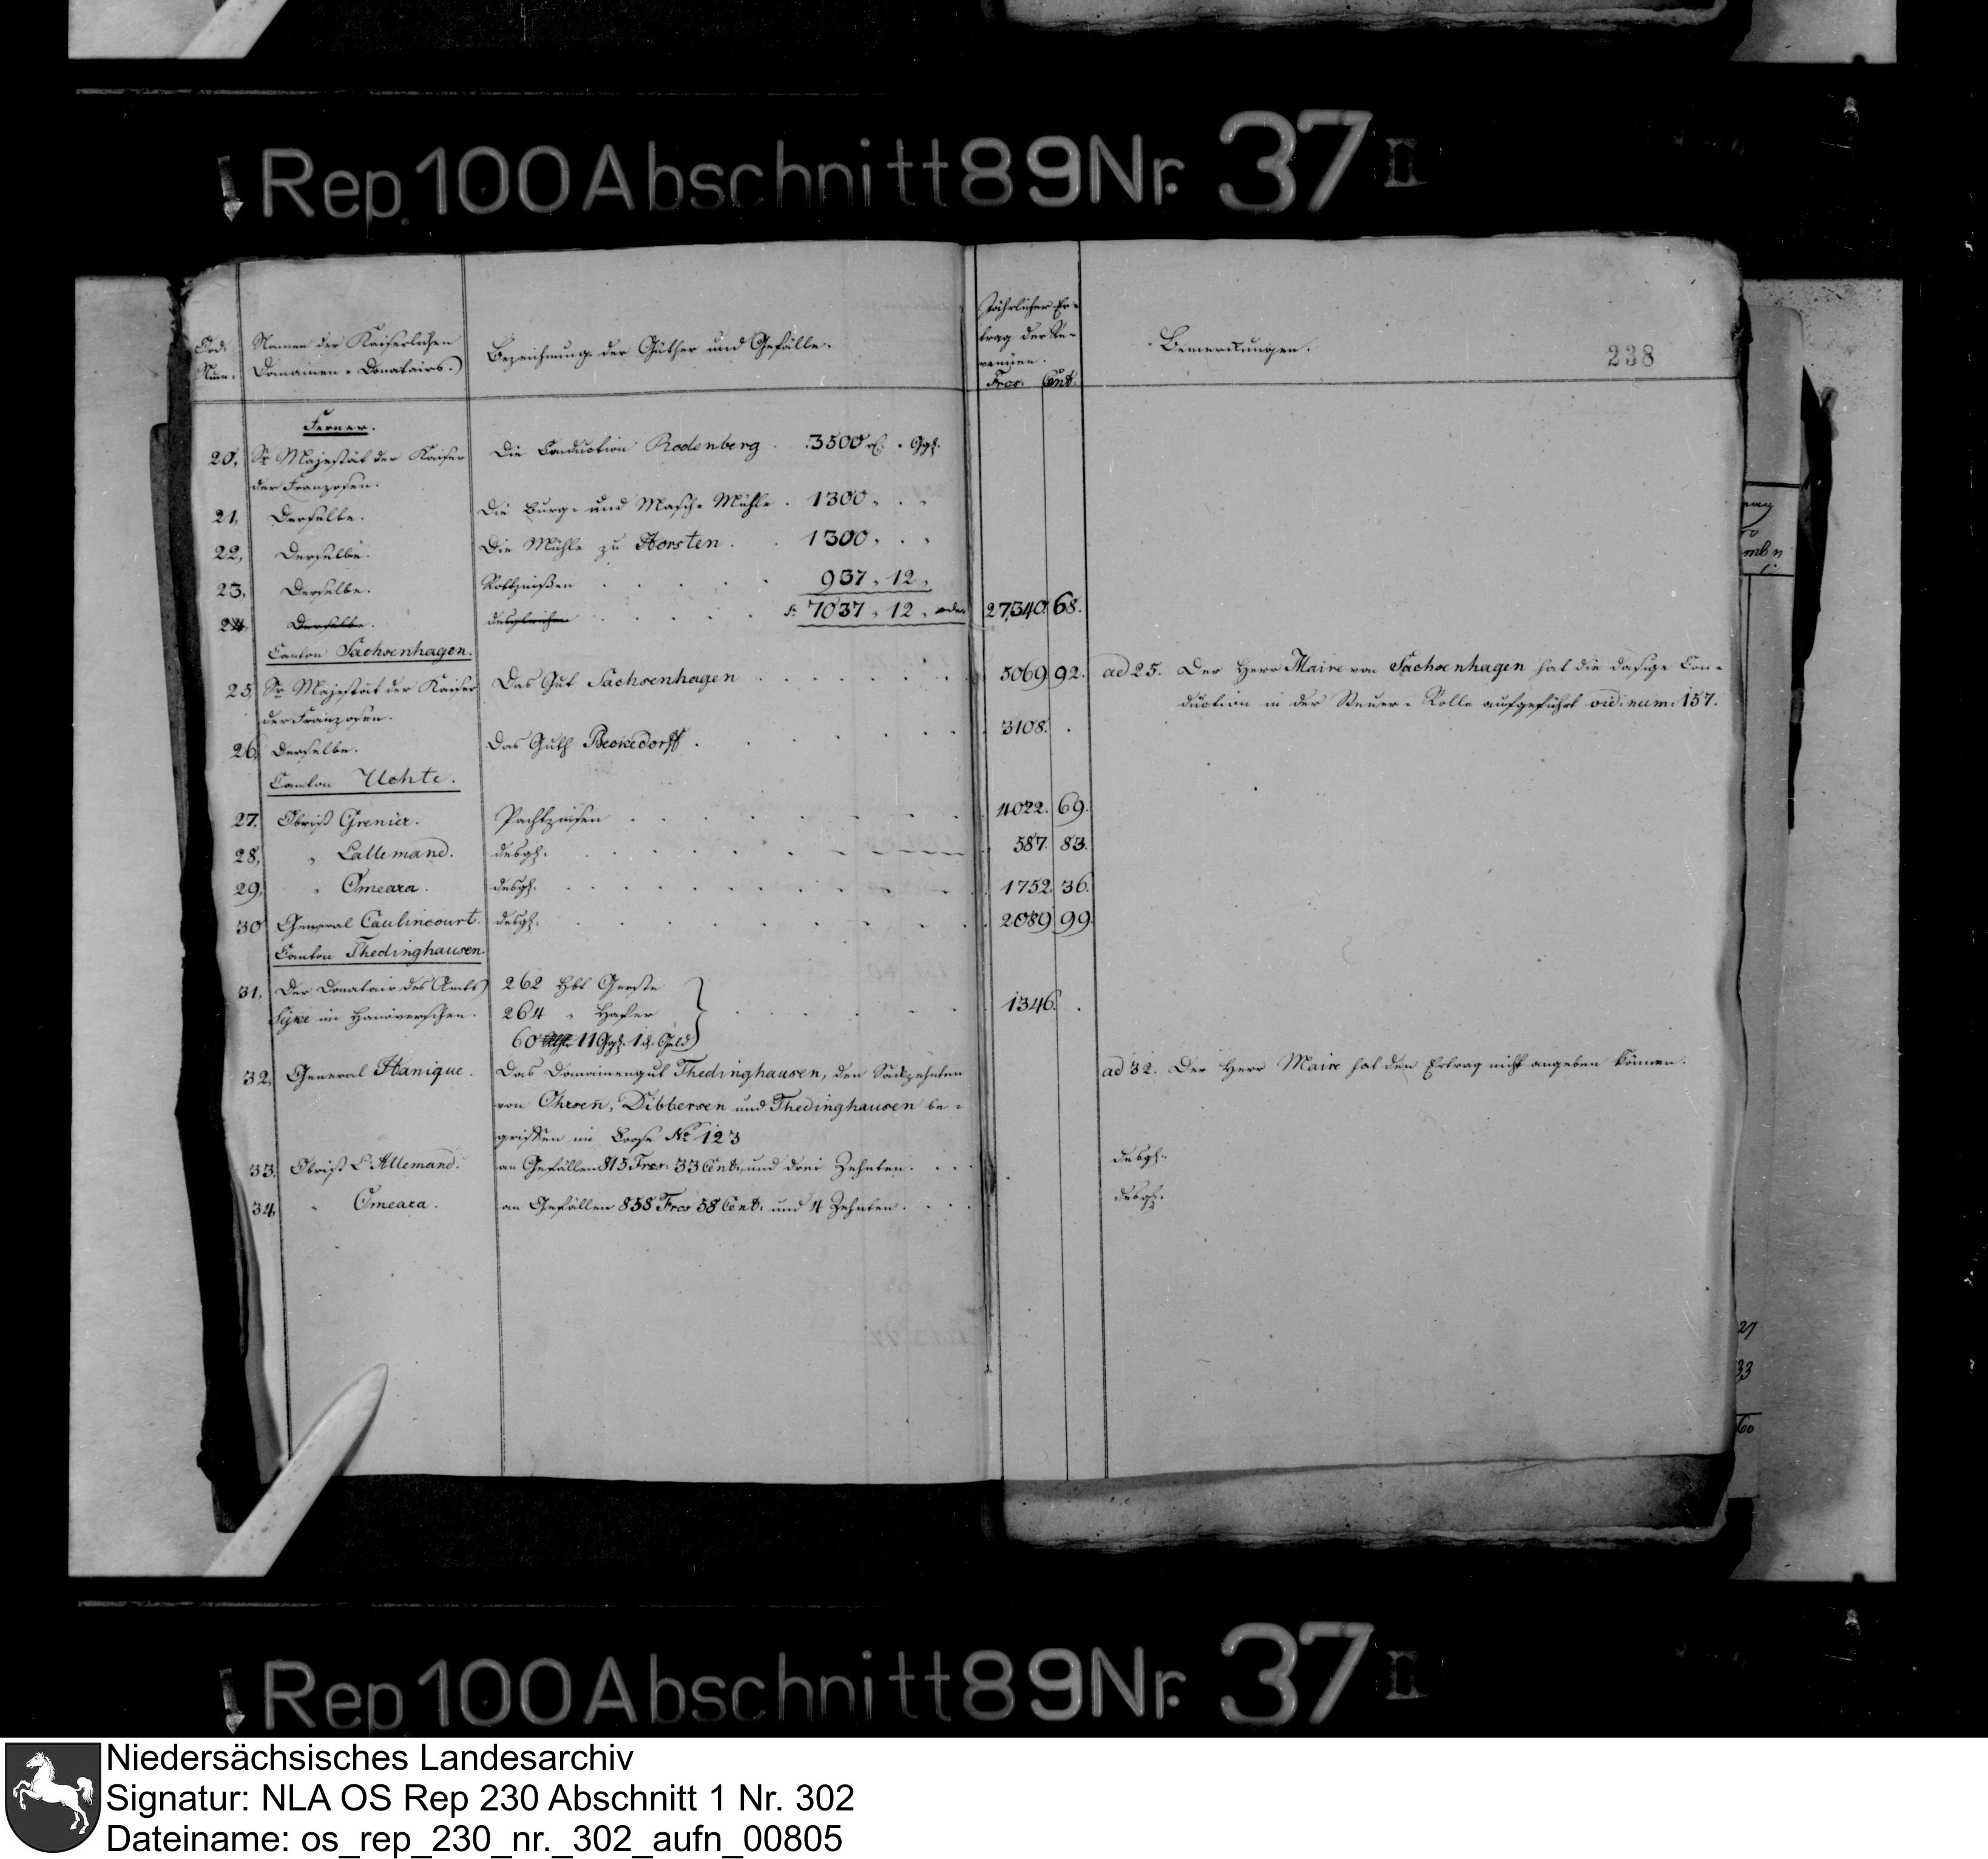 Rep 100 Abschnitt 89 Nr. 37 II
Ord. Num.
Namen der Kaiserlichen Domainen-Donatairs.
Bezeichnung der Güther und Gefälle.
Jährlicher Ertrag der Revenüen.
Frcs. Cent.
Bemerkungen.
238
Ferner.
20, Sr Majestät der Kaiser Die Conduction Rodenberg . . 3500 rt. " Ggl.
der Franzosen.
21, Derselbe. Die Burg- und Masch-Mühle . 1300 " . "
22, Derselbe. Die Mühle zu Horsten . . 1300 " . "
23, Derselbe. 937 " 12 "
24, Derselbe. desgleichen 7037 " 12 " oder 27,340. 68.
Canton Sachsenhagen.
25, Sr Majestät der Kaiser Das Gut Sachsenhagen 5069 92. ad 25. Der Herr Maire von Sachsenhagen hat die dasige Con-
der Franzosen. duction in der Steuer-Rolle aufgeführt vid. num. 157.
26, Derselbe. Das Guth Beckedorff . 3108. .
Canton Uchte.
27. Obrist Grenier. Pachtzinsen 4022. 69.
28, " Lallemand. desgl. 587. 83.
29, " Omeara. desgl. 1752. 36.
30 General Caulincourt. desgl. 2089 99.
Canton Thedinghausen.
31, Der Donatair des Amts 262 Hbt Gerste
Syke im Hanöverschen. 264 " Hafer 1346. .
60 11 Ggl. 1 d. Geld
32, General Hanique. Das Domainengut Thedinghausen, den Sackzehnten ad 32. Der Herr Maire hat den Ertrag nicht angeben können.
von Ohrsen, Dibbersen und Thedinghausen be-
griffen im Loose No 123
33, Obrist L'Allemand. an Gefällen 815 Frcs. 33 Cent. und drei Zehnten. desgl.
34, " Omeara. an Gefällen 858 Frcs 58 Cent. und 4 Zehnten. desgl.
Rep 100 Abschnitt 89 Nr. 37 II
Niedersächsisches Landesarchiv
Signatur: NLA OS Rep 230 Abschnitt 1 Nr. 302
Dateiname: os_rep_230_nr._302_aufn_00805